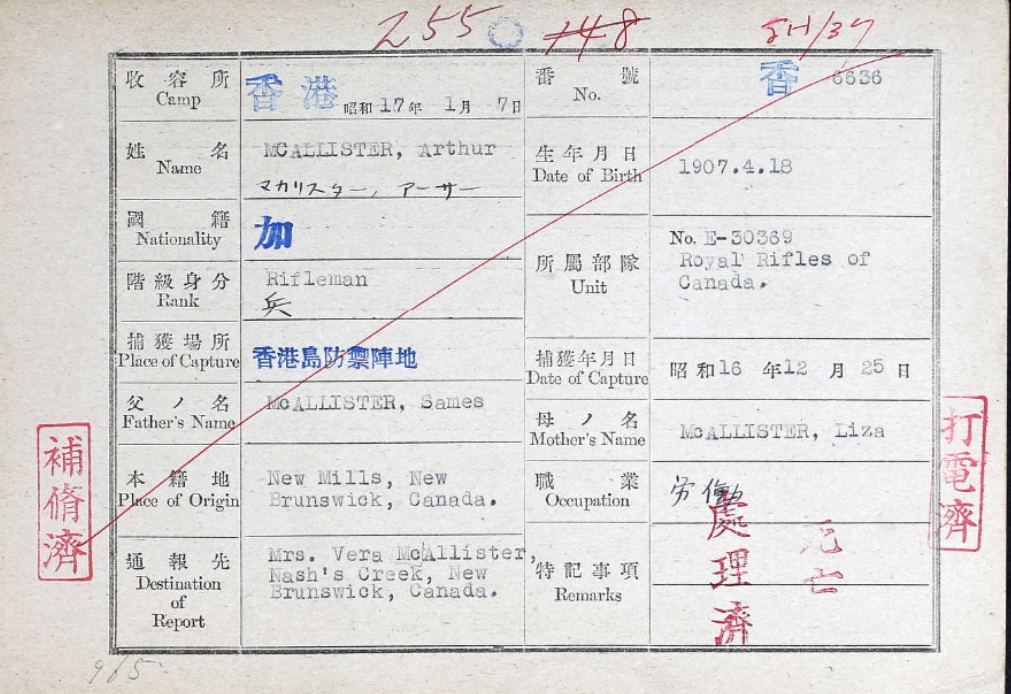 255
148
収容所
Camp
香港 昭和17年 1月 7日
番號
No.
香 6636
姓名
Name
MCALLISTER, Arthur
マカリスター, アーサー
生年月日
Date of Birth
1907.4.18
國籍
Nationality
加
所屬部隊
Unit
No. E-30369
Royal Rifles of
Canada.
階級身分
Rank
Rifleman
兵
捕獲場所
Place of Capture
香港島防禦陣地
捕獲年月日
Date of Capture
昭和16 年12 月 25 日
父ノ名
Father's Name
McALLISTER, Sames
母ノ名
Mother's Name
McALLISTER, Liza
本籍地
Place of Origin
New Mills, New
Brunswick, Canada.
職業
Occupation
労働
通報先
Destination
of
Report
Mrs. Vera McAllister,
Nash's Creek, New
Brunswick, Canada.
特記事項
Remarks
處理濟
死亡
補脩濟
打電濟
965